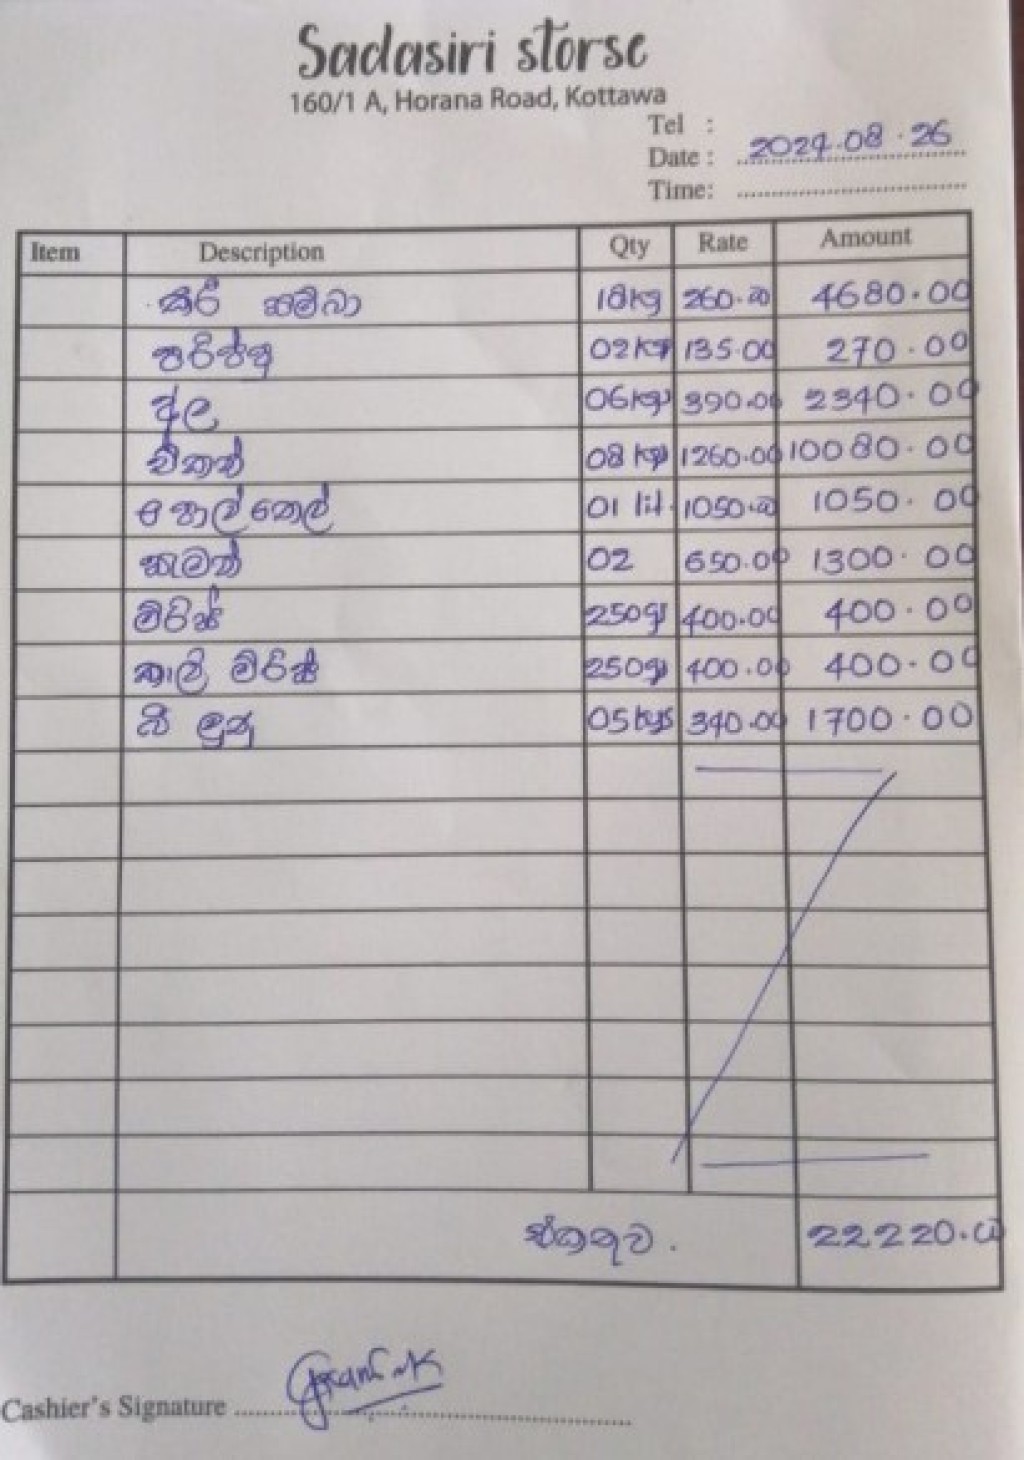 Sadasiri storse
160/1 A, Horana Road, Kottawa
Tel :
Date : 2024.08.26
Time:
Item Description Qty Rate Amount
කීරි සම්බා 18kg 260.00 4680.00
පරිප්පු 02kg 135.00 270.00
අල 06kg 390.00 2340.00
චිකන් 08kg 1260.00 10080.00
පොල් තෙල් 01 lit 1050.00 1050.00
සැමන් 02 650.00 1300.00
මිරිස් 250g 400.00 400.00
කෑලි මිරිස් 250g 400.00 400.00
බී ලූනු 05kgs 340.00 1700.00
එකතුව. 22220.00
Cashier's Signature